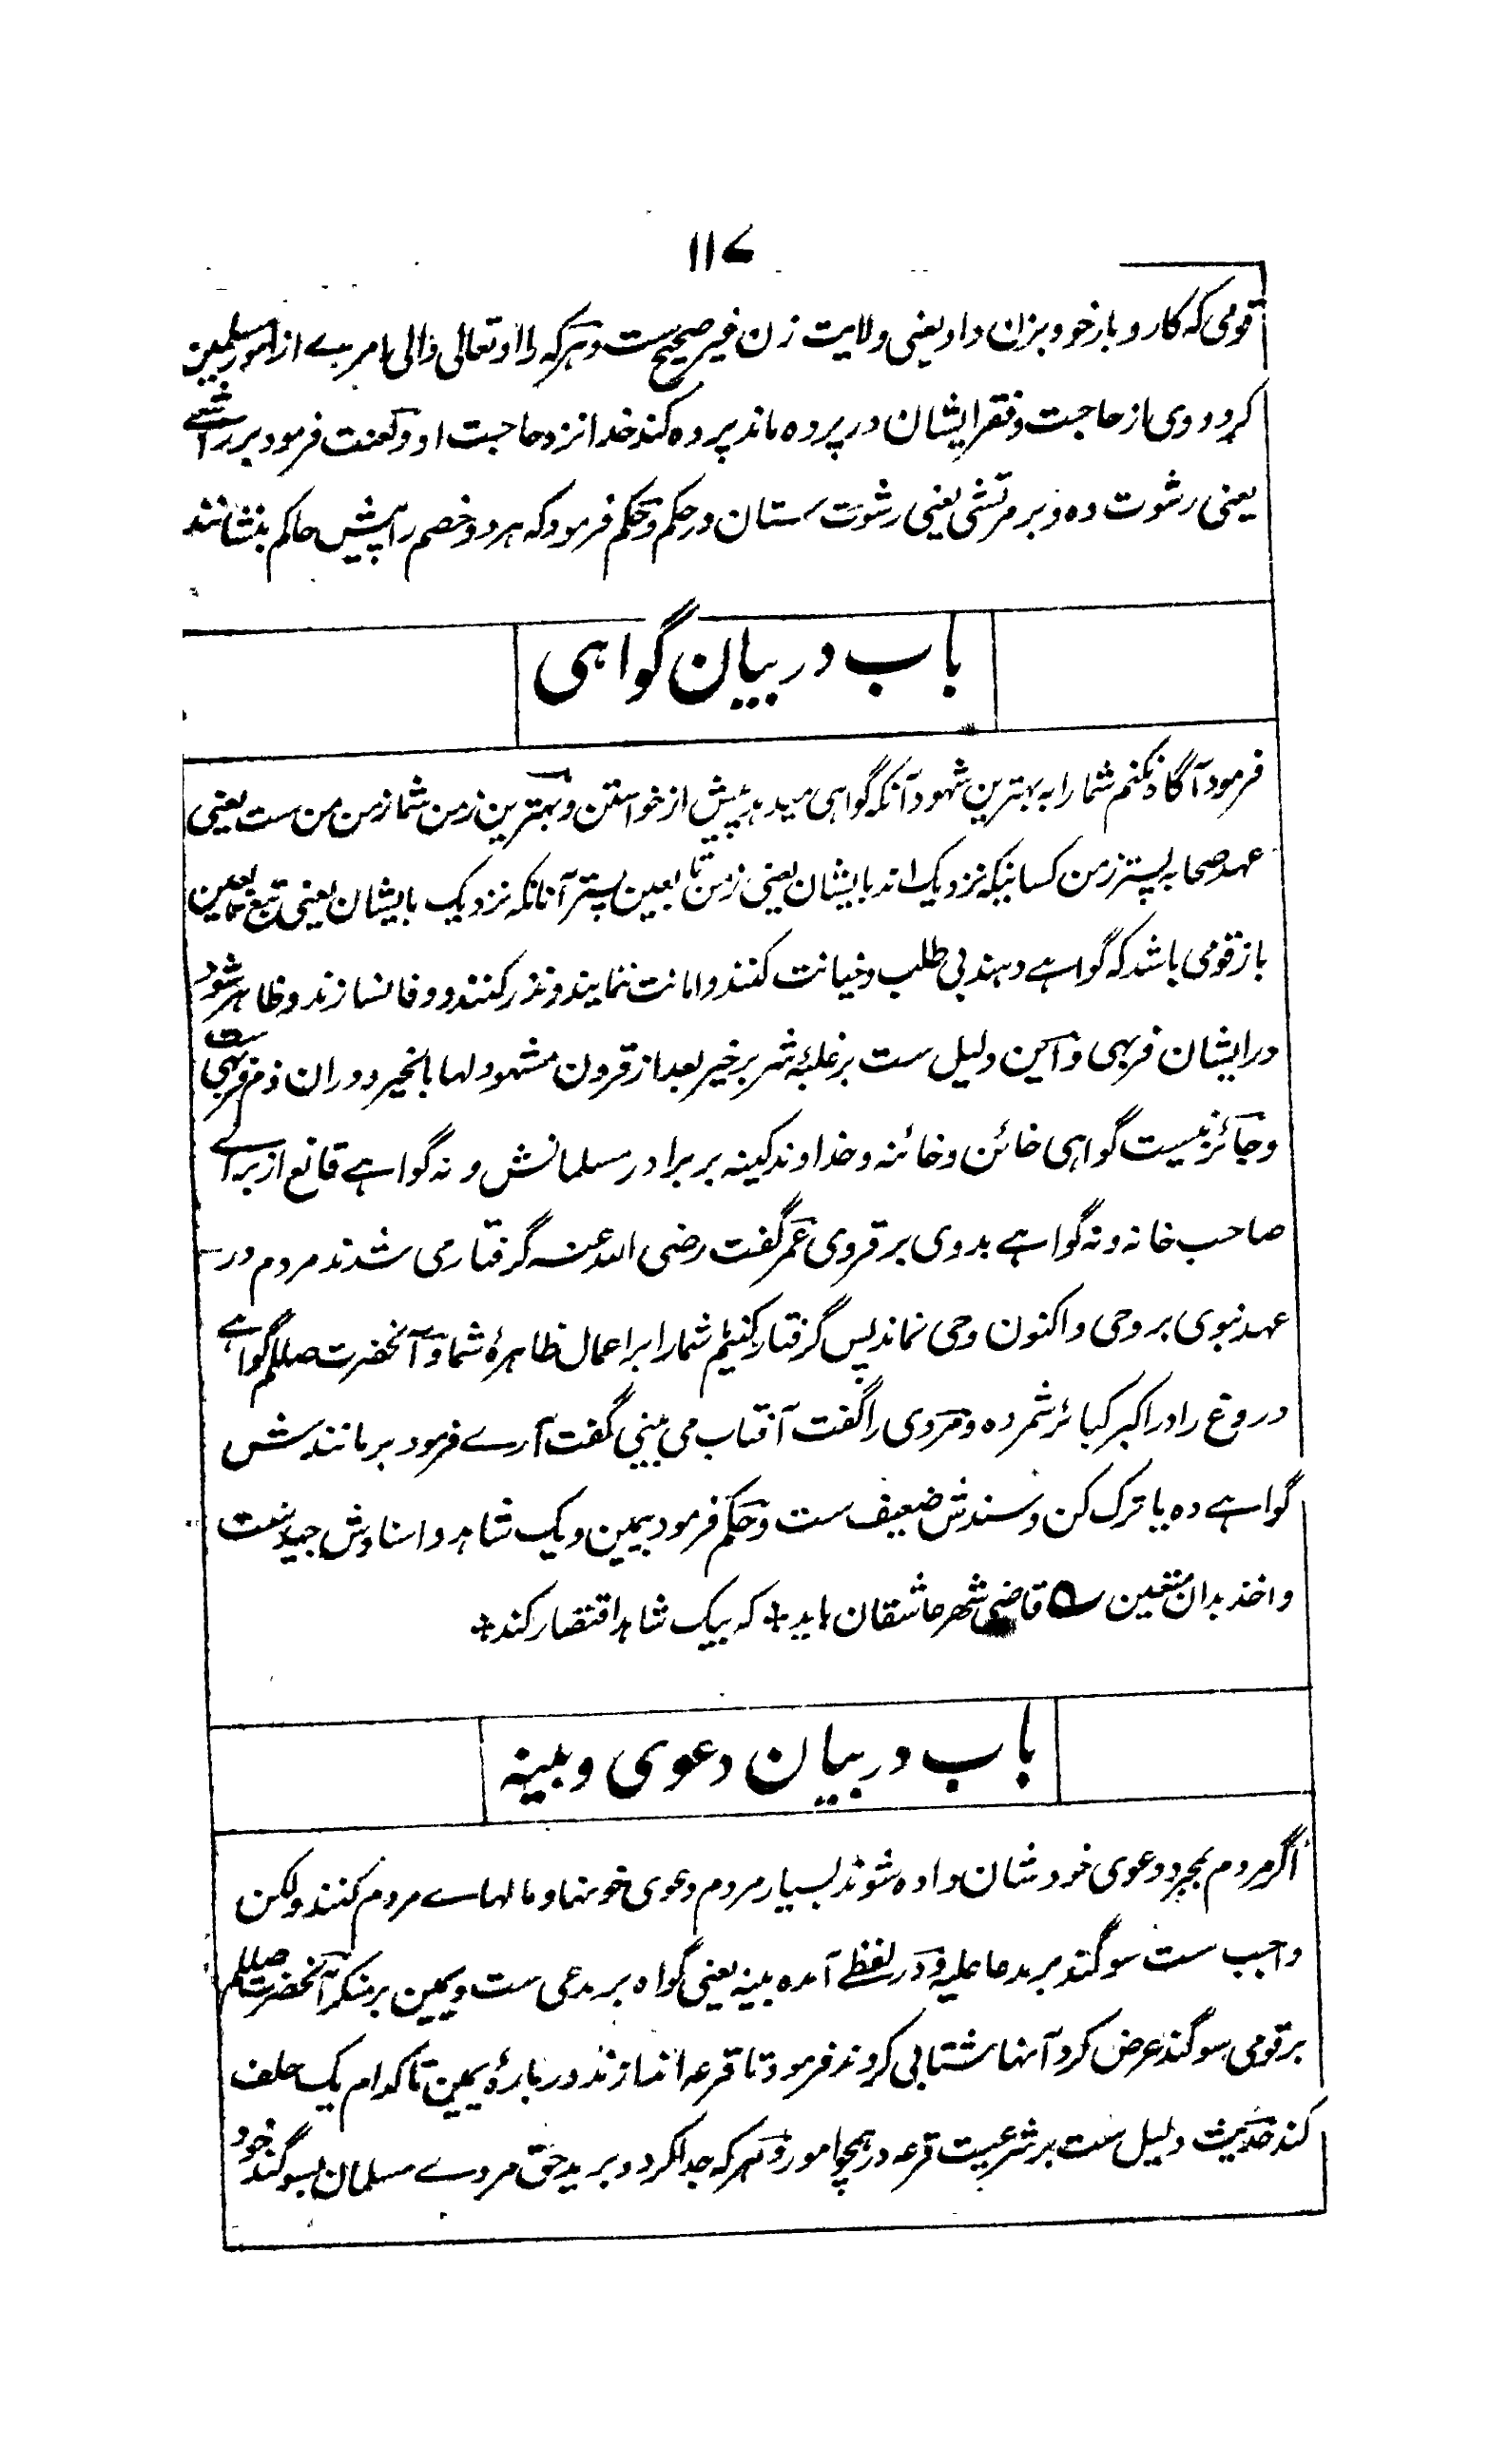 ۱۱۷
قومی که کار و بار خود بزن داد یعنی ولایت زن غیر صحیح ست و هرکه را او تعالی والی امرے از امور مسلمین
کرد و وی از حاجت و فقر ایشان در پرده ماند پرده کند خدا نزد حاجت او و لعنت فرمود بر راشے
یعنی رشوت ده و بر مرتشی یعنی رشوت ستان در حکم و حکم فرمود که هر دو خصم را پیش حاکم بنشانند
باب در بیان گواهی
فرمود آگاه نکنم شما را به بهترین شهود آنکه گواهی میدهد پیش از خواستن و بهترین زمن شما زمن من ست یعنی
عهد صحابه پستر زمن کسانیکه نزدیک اند بایشان یعنی زمن تابعین پستر آنانکه نزدیک بایشان یعنی تبع تابعین
باز قومی باشد که گواهے دهند بی طلب و خیانت کنند و امانت ننمایند و نذر کنند و وفا نسازند و ظاهر شود
در ایشان فربهی و این دلیل ست بر غلبۀ شر بر خیر بعد از قرون مشهود لها بالخیر و دران ذم فربهی ست
و جائز نیست گواهی خائن و خائنه و خداوند کینه بر برادر مسلمانش و نه گواهے قانع از براے
صاحب خانه و نه گواهے بدوی بر قروی عمر گفت رضی الله عنه گرفتار می شدند مردم در
عهد نبوی بر وحی و اکنون وحی نماند پس گرفتار کنیم شما را بر اعمال ظاهرۀ شما و آنحضرت صلعم گواهے
دروغ را در اکبر کبائر شمرده و مردی را گفت آفتاب می بینی گفت آرے فرمود بر مانندش
گواهے ده یا ترک کن و سندش ضعیف ست و حکم فرمود بیمین و یک شاهد و اسنادش جیدست
و اخذ بدان متعین ؎ قاضی شهر عاشقان باید + که بیک شاهد اقتصار کند +
باب در بیان دعوی و بینه
اگر مردم بمجرد دعوی خودشان داده شوند بسیار مردم دعوی خونها و مالهاے مردم کنند ولکن
واجب ست سوگند بر مدعا علیه و در لفظے آمده بینه یعنی گواه بر مدعی ست و یمین بر منکر آنحضرت صلعم
بر قومی سوگند عرض کرد آنها شتابی کردند فرمود تا قرعه اندازند در بارۀ یمین تا کدام یک حلف
کند حدیث دلیل ست بر شرعیت قرعه در همچو امور و هرکه جدا کرد و برید حق مردے مسلمان بسوگند خود